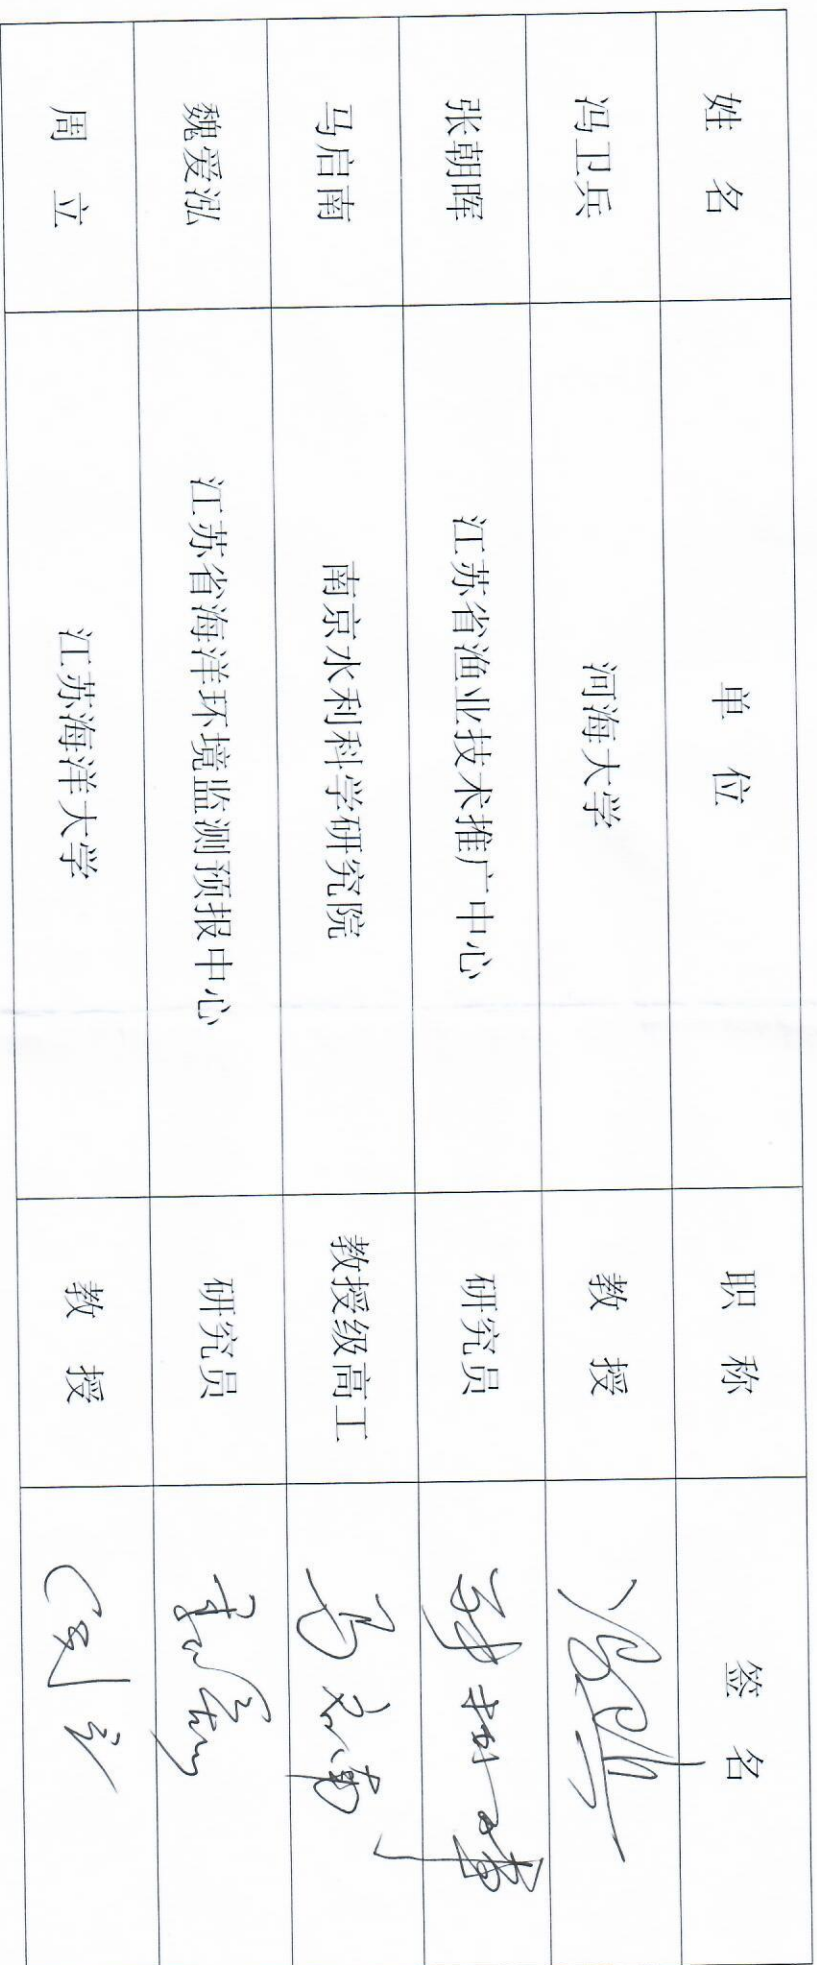 姓 名 单 位 职 称 签 名
冯卫兵 河海大学 教 授 冯卫兵
张朝晖 江苏省渔业技术推广中心 研究员 张朝晖
马启南 南京水利科学研究院 教授级高工 马启南
魏爱泓 江苏省海洋环境监测预报中心 研究员
周 立 江苏海洋大学 教 授 周立